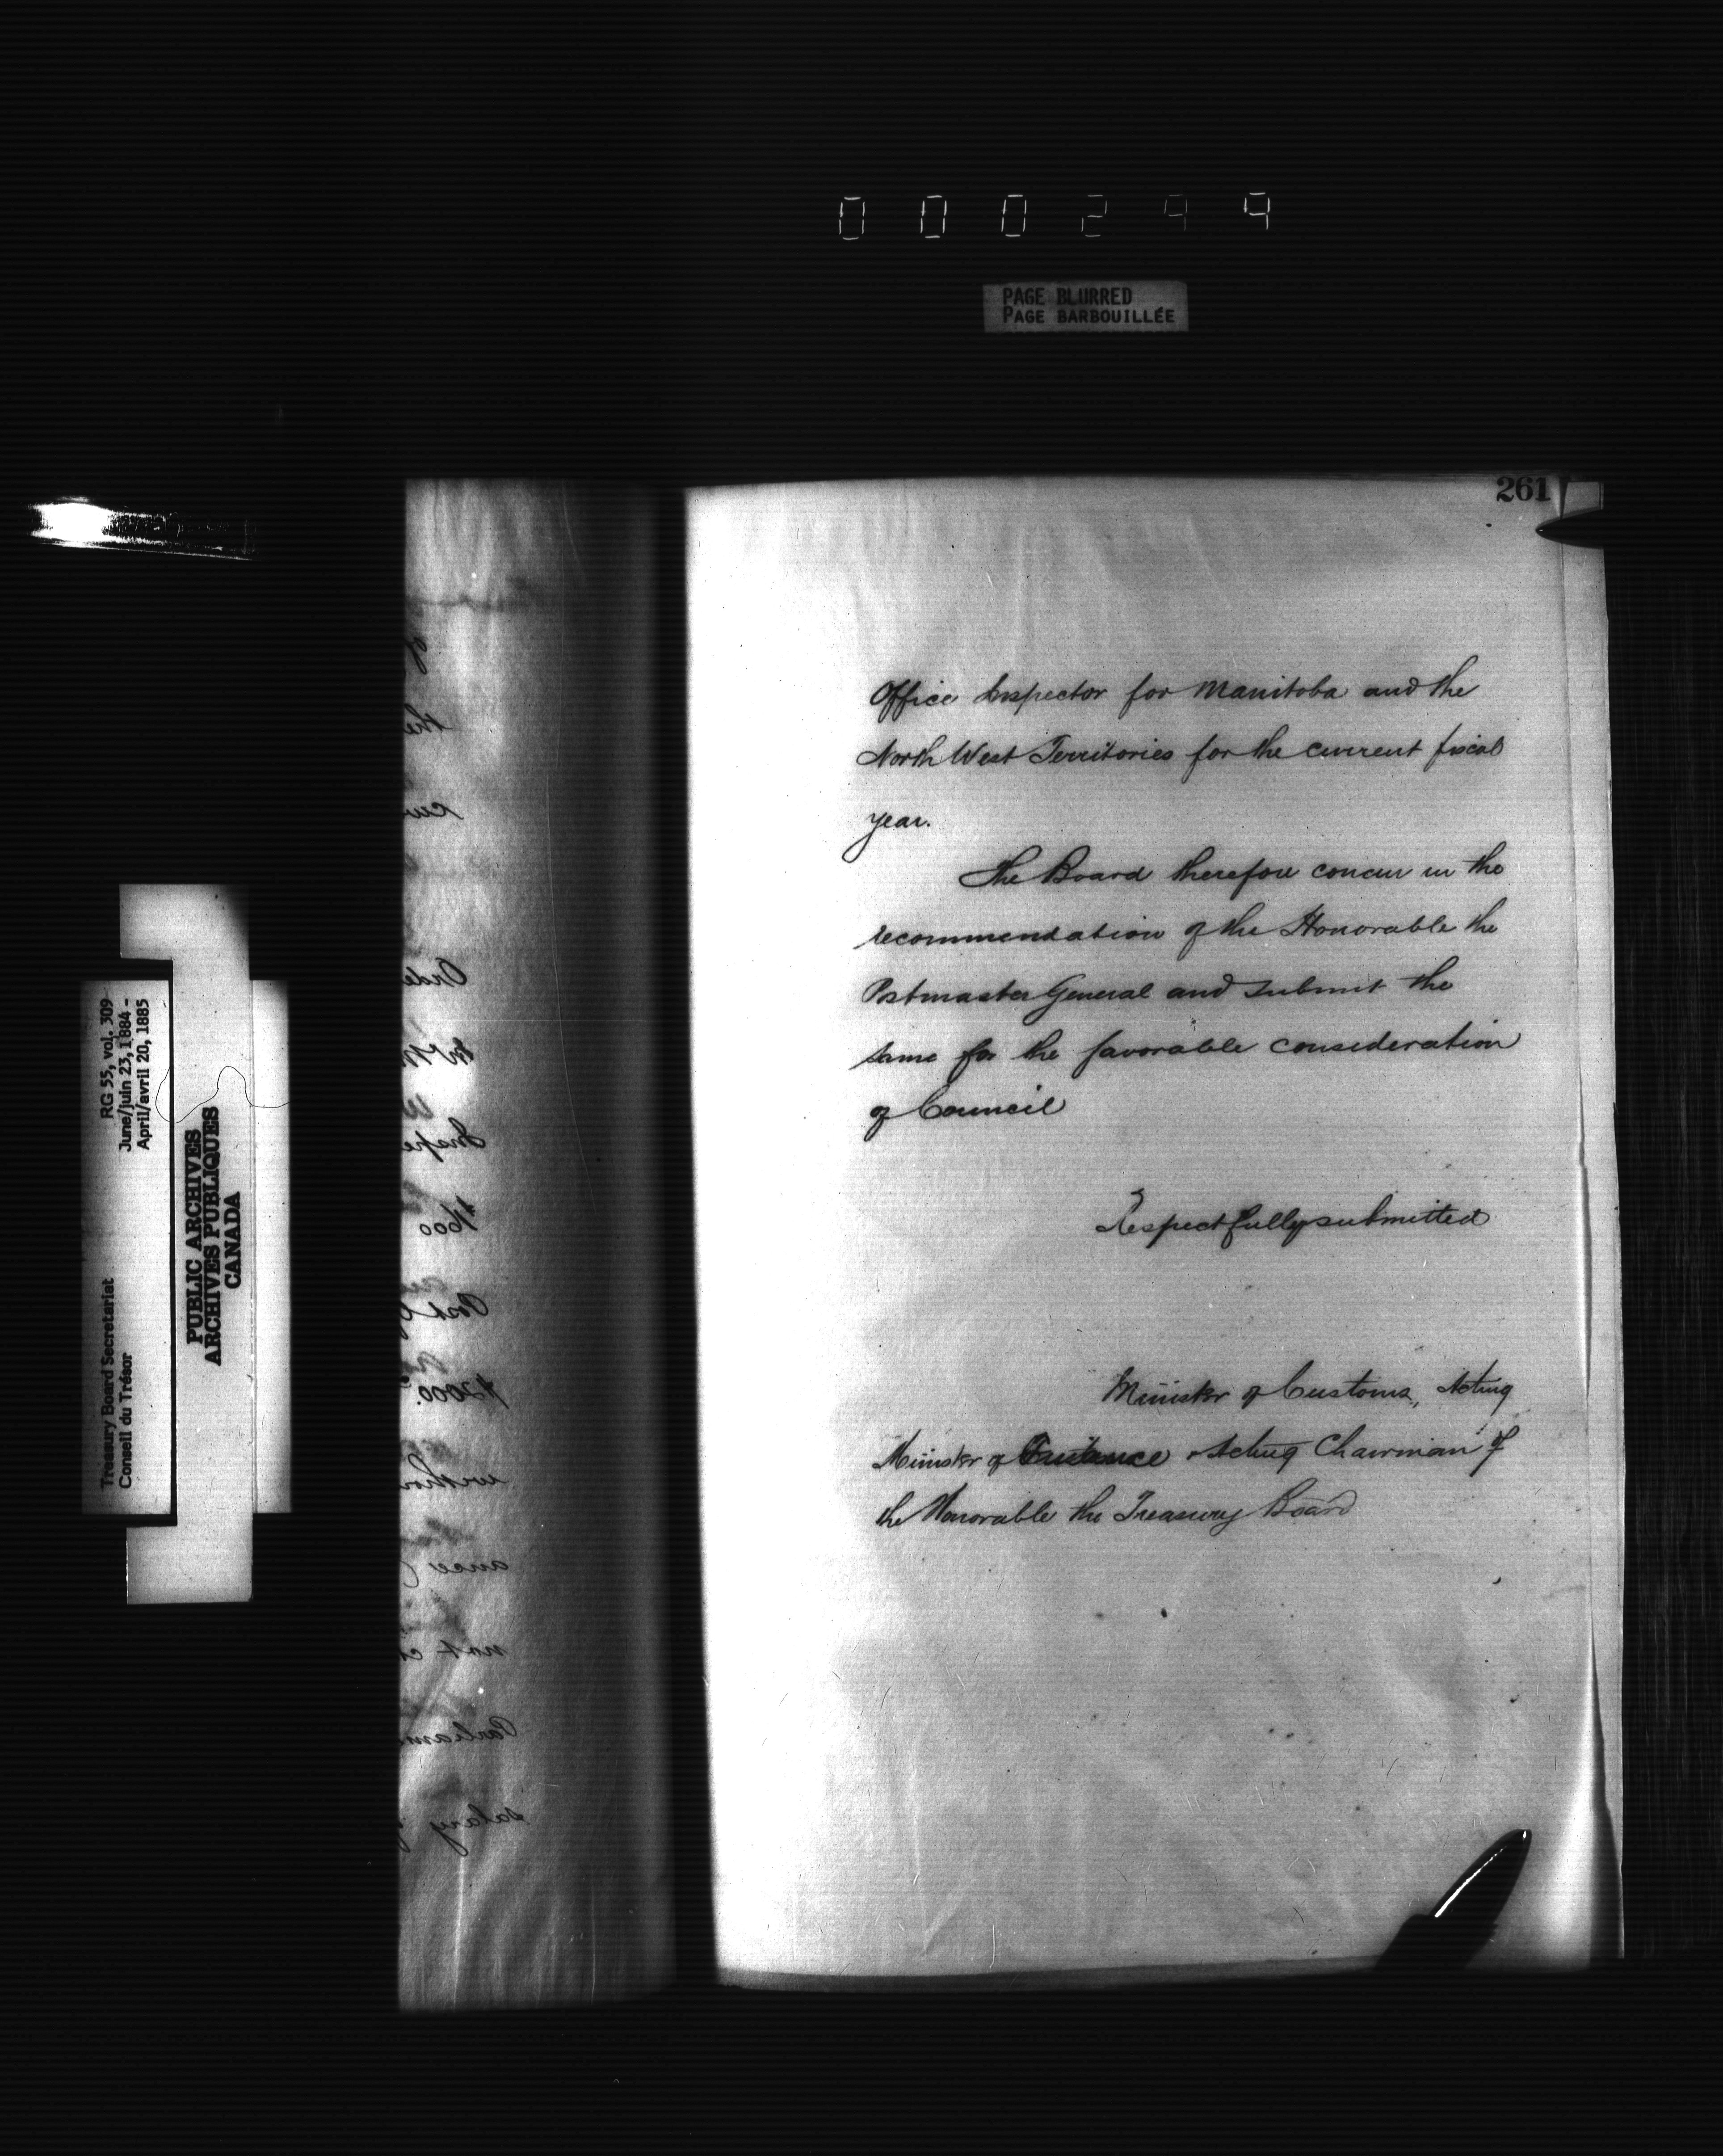 000299
PAGE BLURRED
PAGE BARBOUILLÉE
261
Office Inspector for Manitoba and the
North West Territories for the current fiscal
year.
The Board therefore concur in the
recommendation of the Honorable the
Postmaster General and submit the
same for the favorable consideration
of Council
Respectfully submitted
Minister of Customs, Acting
Minister of Finance & Acting Chairman of
the Honorable the Treasury Board
RG 55, vol. 309
June/juin 23, 1884 -
April/avril 20, 1885
Treasury Board Secretariat
Conseil du Trésor
PUBLIC ARCHIVES
ARCHIVES PUBLIQUES
CANADA
of
the
Orde
Inspe
$1600
Post
$2000
ance
not
Parliam
salary